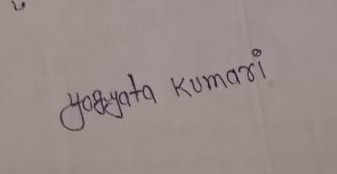 yogyata Kumari